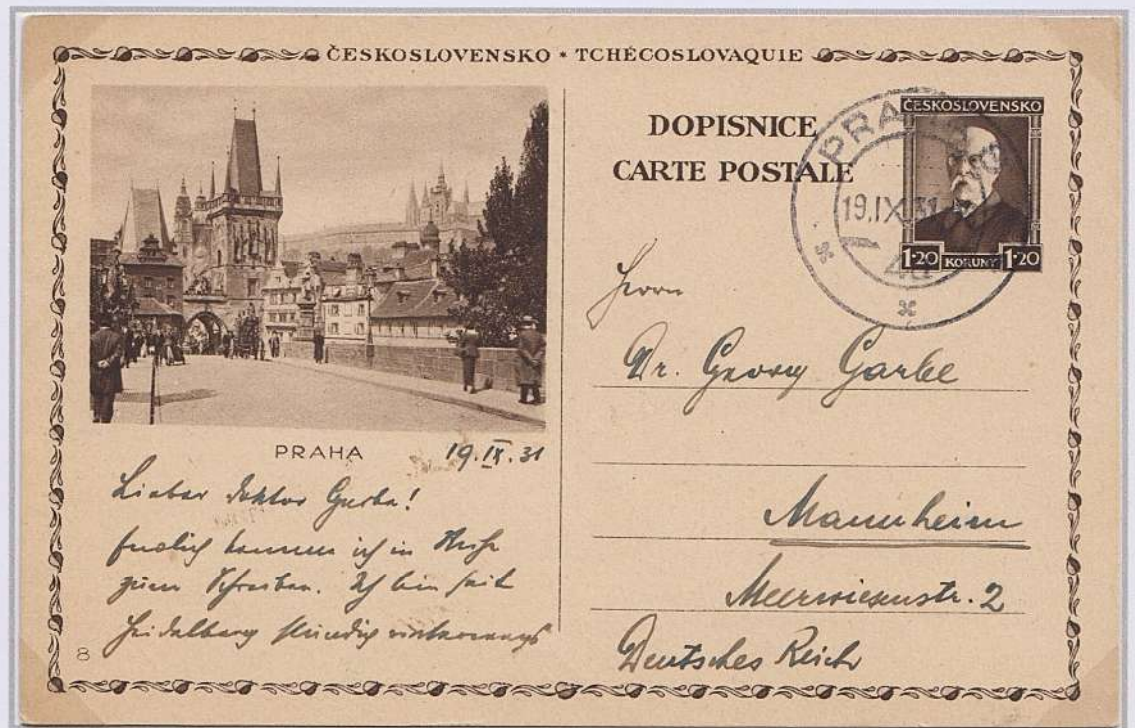 ČESKOSLOVENSKO * TCHÉCOSLOVAQUIE
DOPISNICE
CARTE POSTALE
ČESKOSLOVENSKO
1·20 KORUNY 1·20
PRAHA
19.IX.31
PRAHA 19.IX.31
Lieber Doktor Garbe!
Endlich komme ich in Ruhe
zum Schreiben. Ich bin seit
Heidelberg ständig unterwegs
8
Herrn
Dr. Georg Garbe
Mannheim
Meerwiesenstr. 2
Deutsches Reich